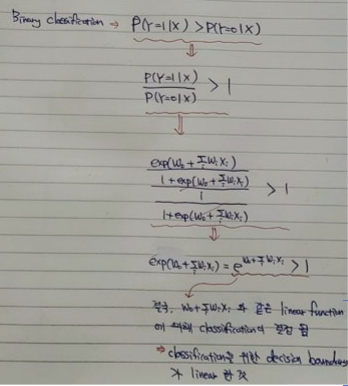 Binary classification → P(Y=1|X) > P(Y=0|X)
⇓
P(Y=1|X) / P(Y=0|X) > 1
⇓
exp(w₀ + Σᵢ wᵢxᵢ)
1 + exp(w₀ + Σᵢ wᵢxᵢ)
> 1
1
1 + exp(w₀ + Σᵢ wᵢxᵢ)
⇓
exp(w₀ + Σᵢ wᵢxᵢ) = e^(w₀ + Σᵢ wᵢxᵢ) > 1
결국, w₀ + Σᵢ wᵢxᵢ 와 같은 linear function
에 의해 classification이 결정 됨
⇒ classification을 위한 decision boundary
가 linear 한 것